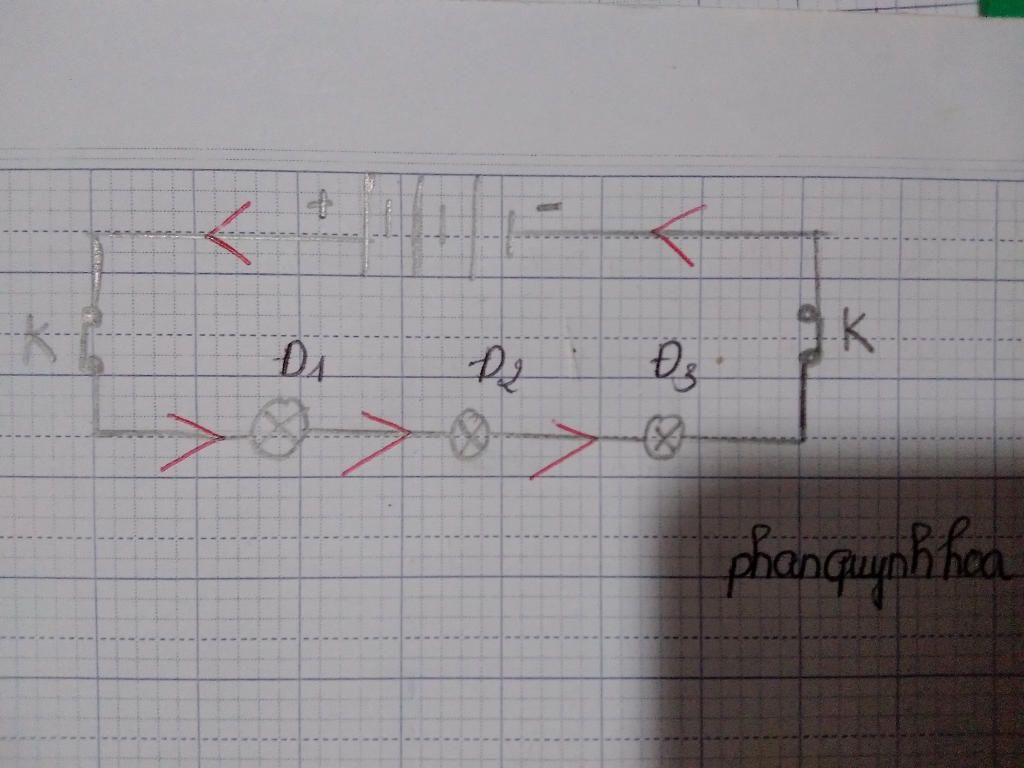 + -
K K
Đ1 Đ2 Đ3
phanquynhhoa